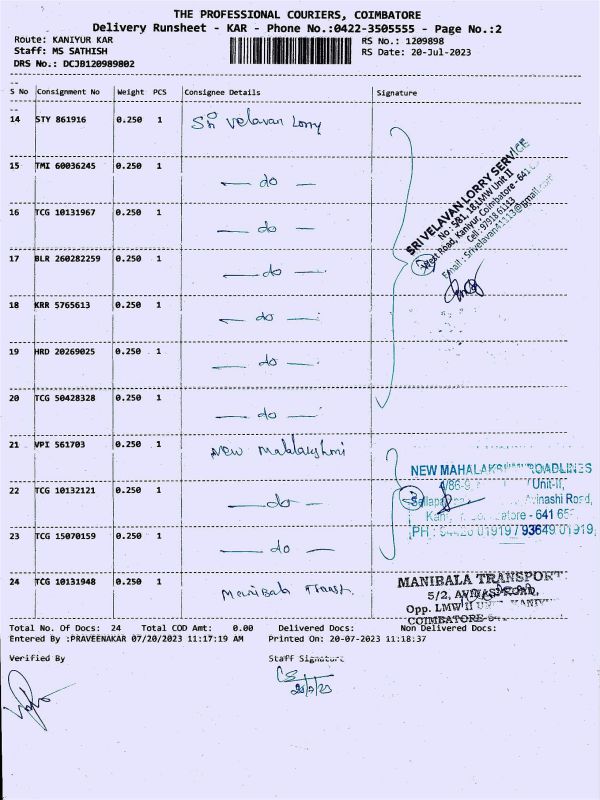 THE PROFESSIONAL COURIERS, COIMBATORE
Delivery Runsheet - KAR - Phone No.:0422-3505555 - Page No.:2
Route: KANIYUR KAR
RS No.: 1209898
Staff: MS SATHISH
RS Date: 20-Jul-2023
DRS No.: DCJB120989802
S No Consignment No Weight PCS Consignee Details Signature
14 STY 861916 0.250 1 Sri Velavan Lorry
15 TMI 60036245 0.250 1 — do —
16 TCG 10131967 0.250 1 — do —
17 BLR 260282259 0.250 1 — do —
18 KRR 5765613 0.250 1 — do —
19 HRD 20269025 0.250 1 — do —
20 TCG 50428328 0.250 1 — do —
SRI VELAVAN LORRY SERVICE
No: 5/81, 18, LMW Unit II
West Road, Kaniyur, Coimbatore - 641
Cell:
Email: Srivelavan41113@gmail.com
7
21 VPI 561703 0.250 1 New Mahalakshmi
22 TCG 10132121 0.250 1 — do —
23 TCG 15070159 0.250 1 — do —
NEW MAHALAKSHMI ROADLINES
Unit-II,
Avinashi Road,
Coimbatore - 641
PH : 01919 / 93649 01919
3
24 TCG 10131948 0.250 1 Manibala Transt.
MANIBALA TRANSPORT
5/2, AVINASI ROAD,
Opp. LMW II UNIT KANIYUR
COIMBATORE
Total No. Of Docs: 24 Total COD Amt: 0.00 Delivered Docs: Non Delivered Docs:
Entered By :PRAVEENAKAR 07/20/2023 11:17:19 AM Printed On: 20-07-2023 11:18:37
Verified By Staff Signature
20/7/23